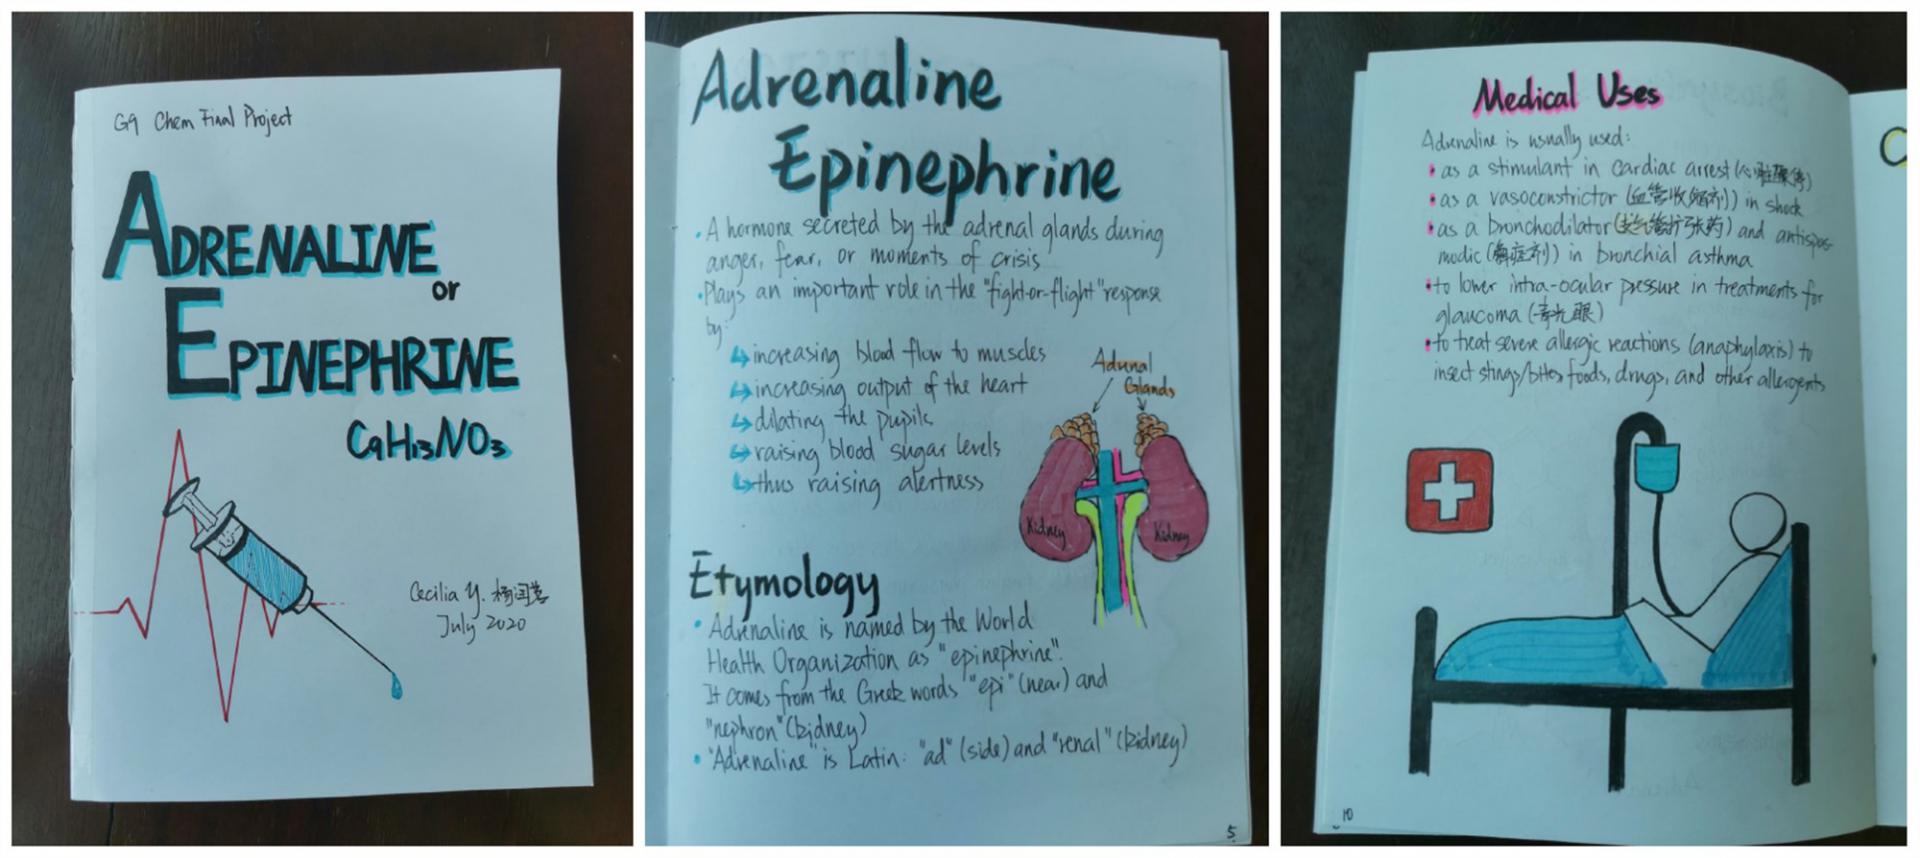 G9 Chem Final Project
ADRENALINE
or
EPINEPHRINE
C9H13NO3
Cecilia Y. 杨闰
July 2020
Adrenaline
Epinephrine
• A hormone secreted by the adrenal glands during
anger, fear, or moments of crisis
• Plays an important role in the "fight-or-flight" response
by:
↳ increasing blood flow to muscles
↳ increasing output of the heart
↳ dilating the pupils
↳ raising blood sugar levels
↳ thus raising alertness
Adrenal
Glands
Kidney
Kidney
Etymology
• Adrenaline is named by the World
Health Organization as "epinephrine".
It comes from the Greek words "epi" (near) and
"nephron" (kidney)
• "Adrenaline" is Latin: "ad" (side) and "renal" (kidney)
5
Medical Uses
Adrenaline is usually used:
• as a stimulant in cardiac arrest (心脏骤停)
• as a vasoconstrictor (血管收缩剂) in shock
• as a bronchodilator (支气管扩张药) and antispas-
modic (解痉剂) in bronchial asthma
• to lower intra-ocular pressure in treatments for
glaucoma (青光眼)
• to treat severe allergic reactions (anaphylaxis) to
insect stings/bites, foods, drugs, and other allergents
10